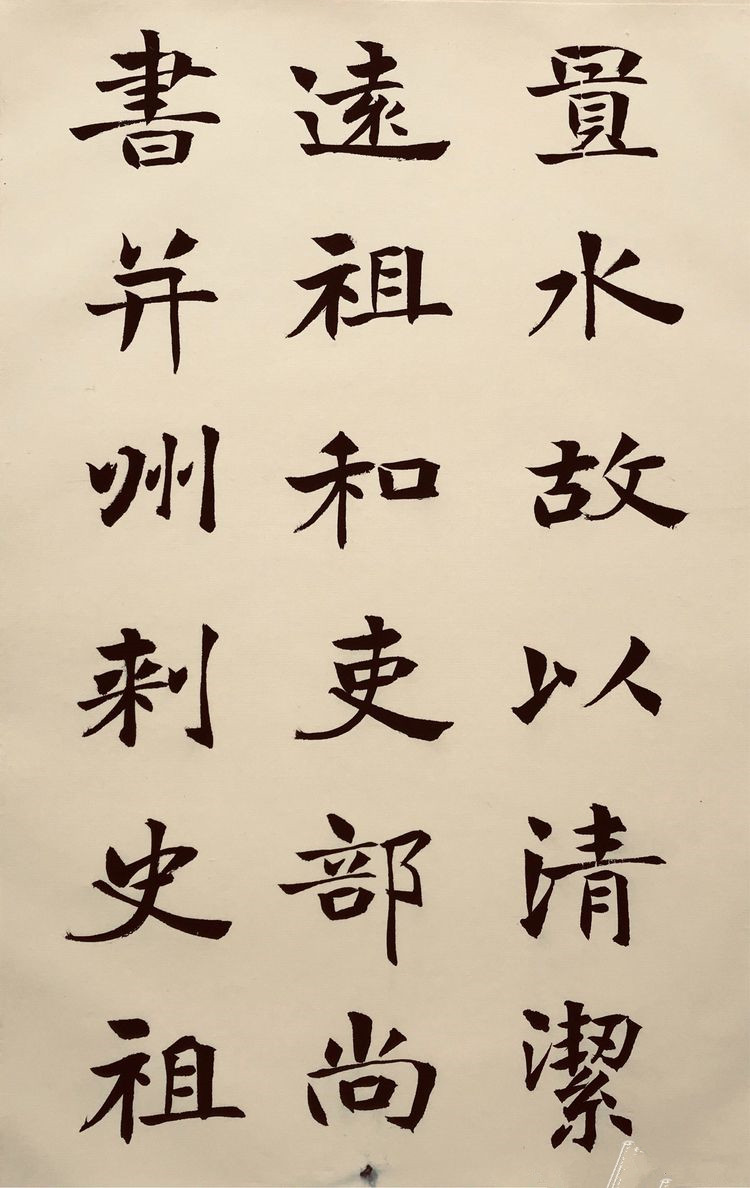 置水故以清潔
遠祖和吏部尚
書并州刺史祖